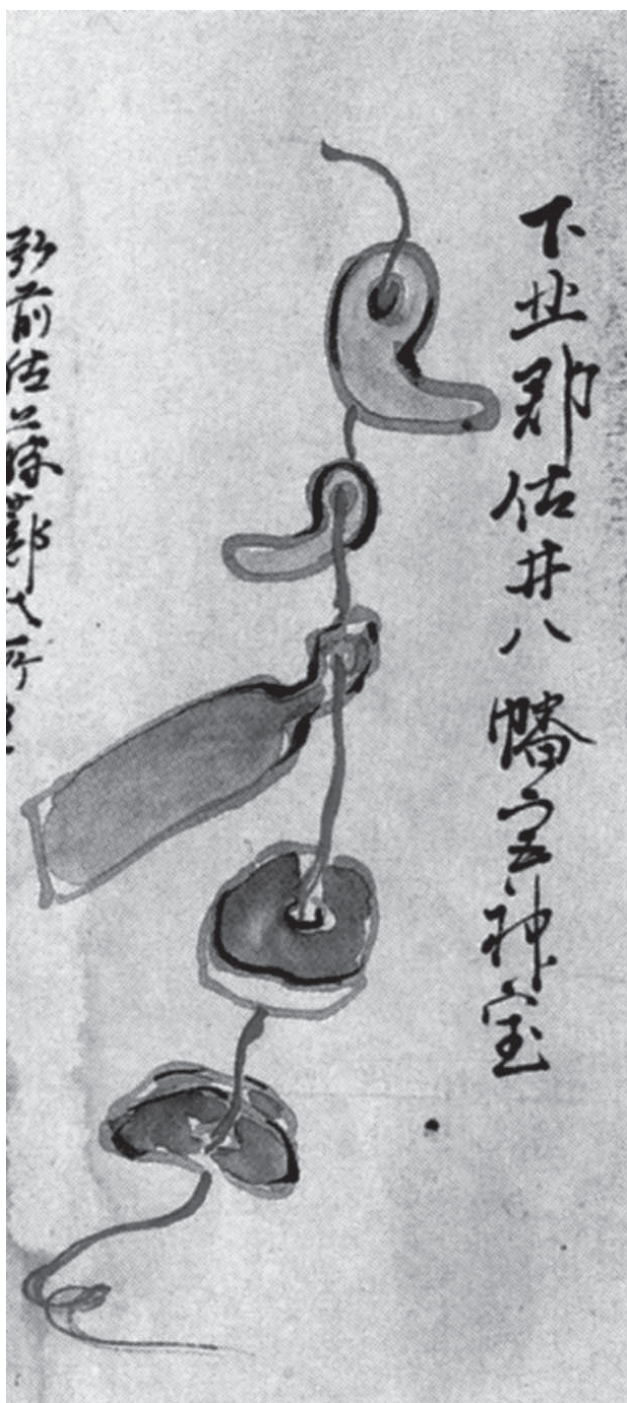 下北郡佐井八幡宮神宝
弘前佐藤蔀氏所